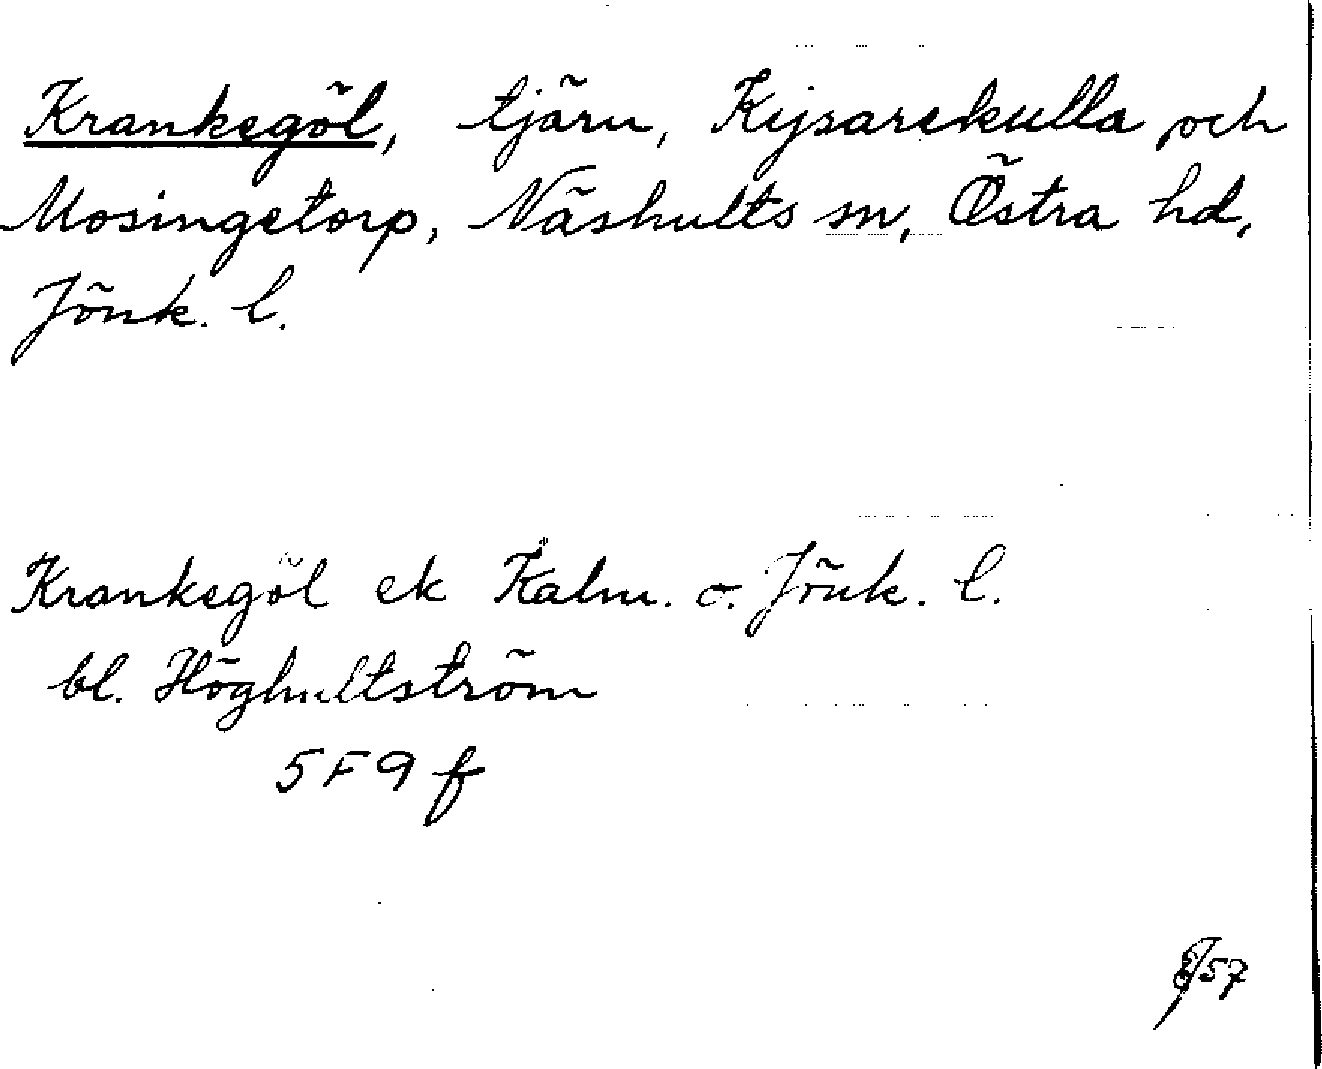 Krankegöl, tjärn, Kejsarekulla och
Mosingetorp, Näshults sn, Östra hd,
Jönk. l.
Krankegöl ek Kalm. o. Jönk. l.
bl. Höghultström
5F9f
57